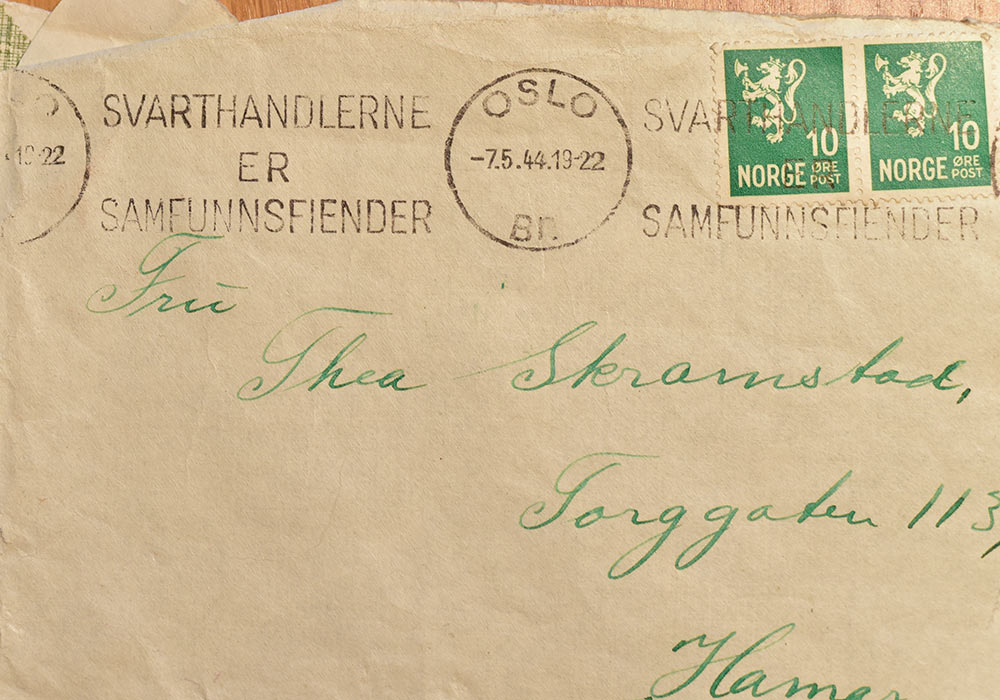 SVARTHANDLERNE
ER
SAMFUNNSFIENDER
OSLO
-7.5.44.19-22
Br.
SVARTHANDLERNE
ER
SAMFUNNSFIENDER
10
NORGE ØRE POST
10
NORGE ØRE POST
Fru
Thea Skramstad,
Torggaten 113,
Hamar